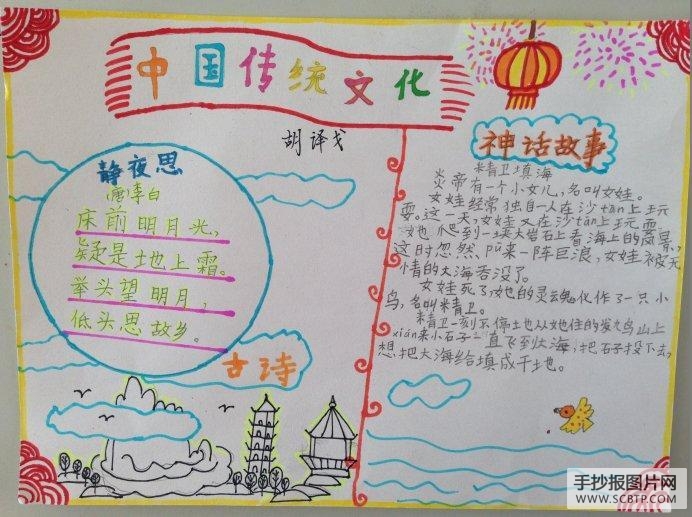 中国传统文化
胡译戈
静夜思
唐李白
床前明月光,
疑是地上霜。
举头望明月,
低头思故乡。
古诗
神话故事
精卫填海
炎帝有一个小女儿,名叫女娃。
女娃经常独自一人在沙tān上玩
耍。这一天,女娃又在沙tān上玩耍
她爬到一块大岩石上看海上的风景,
这时忽然,pū来一阵巨浪,女娃被无
情的大海吞没了。
女娃死了,她的灵魂化作了一只小
鸟,名叫精卫。
精卫一刻不停地从她住的发鸠山上
xián来小石子一直飞到大海,把石子投下去,
想把大海给填成干地。
手抄报图片网
WWW.SCBTP.COM